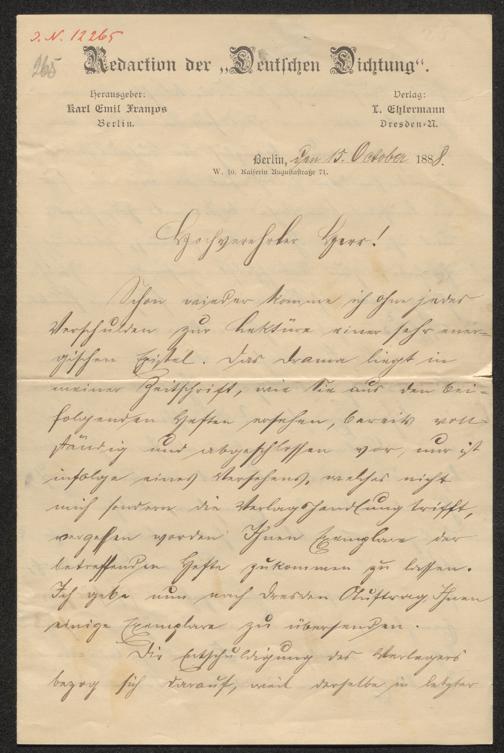 J. N. 12265
265
Redaction der „Deutschen Dichtung“.
Herausgeber:
Karl Emil Franzos
Berlin.
Verlag:
L. Ehlermann
Dresden-N.
Berlin, den 15. October 1888.
W. 10. Kaiserin Augustastraße 71.
Hochverehrter Herr!
Schon wieder komme ich ohne jedes
Verschulden zur Lektüre einer sehr ener-
gischen Epistel. Das Drama liegt in
meiner Zeitschrift, wie Sie aus den bei-
folgenden Heften ersehen, bereits voll-
ständig und abgeschlossen vor, nur ist
infolge eines Versehens, welches nicht
mich sondern die Verlagshandlung trifft,
vergessen worden Ihnen Exemplare der
betreffenden Hefte zukommen zu lassen.
Ich gebe nun nach Dresden Auftrag Ihnen
einige Exemplare zu übersenden.
Die Entschuldigung des Verlegers
bezog sich darauf, weil derselbe in letzter